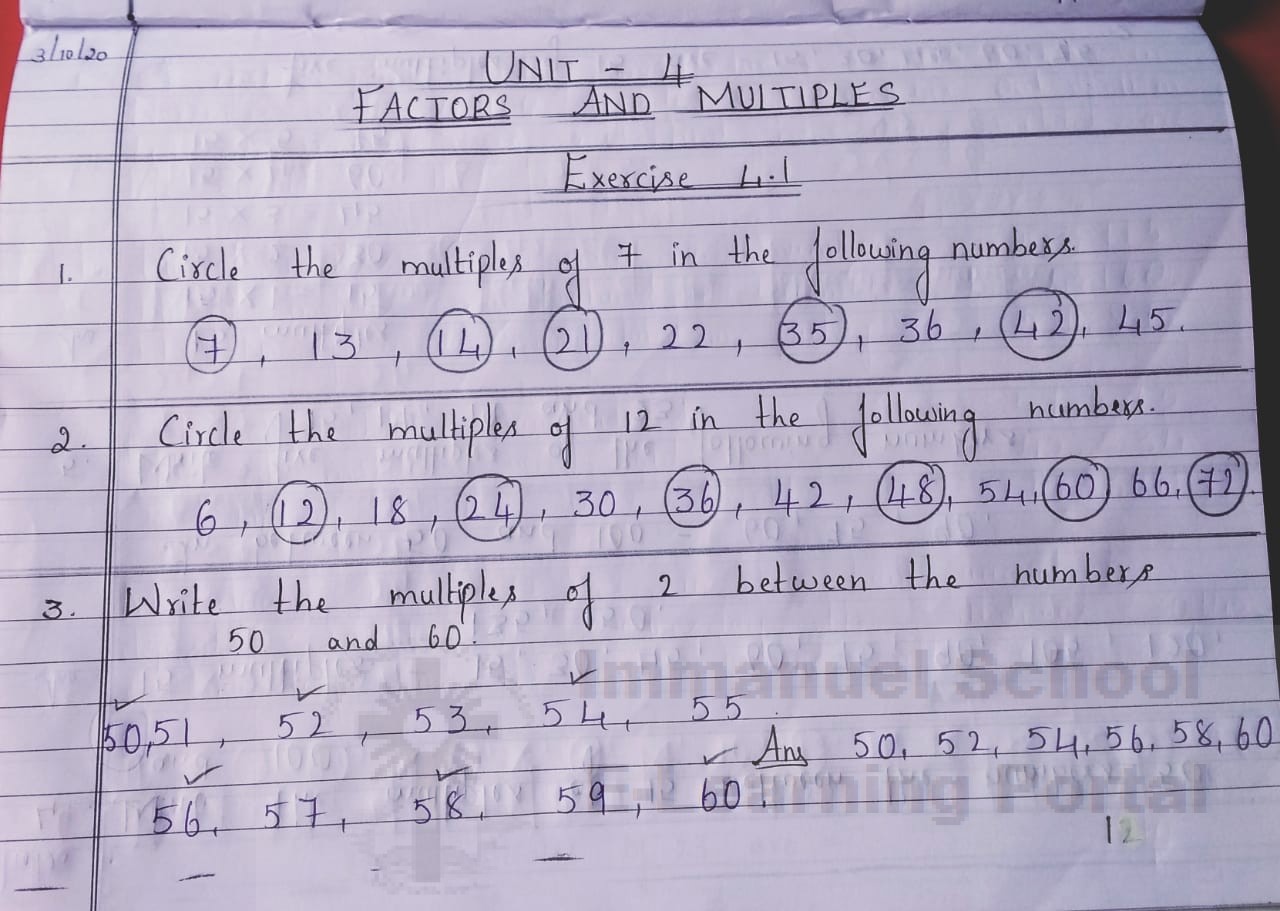 3/10/20
UNIT - 4
FACTORS AND MULTIPLES
Exercise 4.1
1. Circle the multiples of 7 in the following numbers.
7, 13, 14, 21, 22, 35, 36, 42, 45.
2. Circle the multiples of 12 in the following numbers.
6, 12, 18, 24, 30, 36, 42, 48, 54, 60 66, 72.
3. Write the multiples of 2 between the numbers
50 and 60.
Immanuel School
50, 51, 52, 53, 54, 55
Ans 50, 52, 54, 56, 58, 60
56, 57, 58, 59, 60.
E-Learning Portal
12